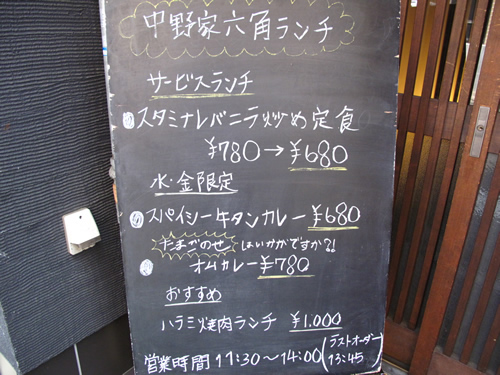 中野家六角ランチ
サービスランチ
スタミナレバニラ炒め定食
¥780→¥680
水・金限定
スパイシー牛タンカレー ¥680
たまごのせ はいかがですか?!
オムカレー ¥780
おすすめ
ハラミ焼肉ランチ ¥1.000
営業時間 11:30〜14:00(ラストオーダー 13:45)